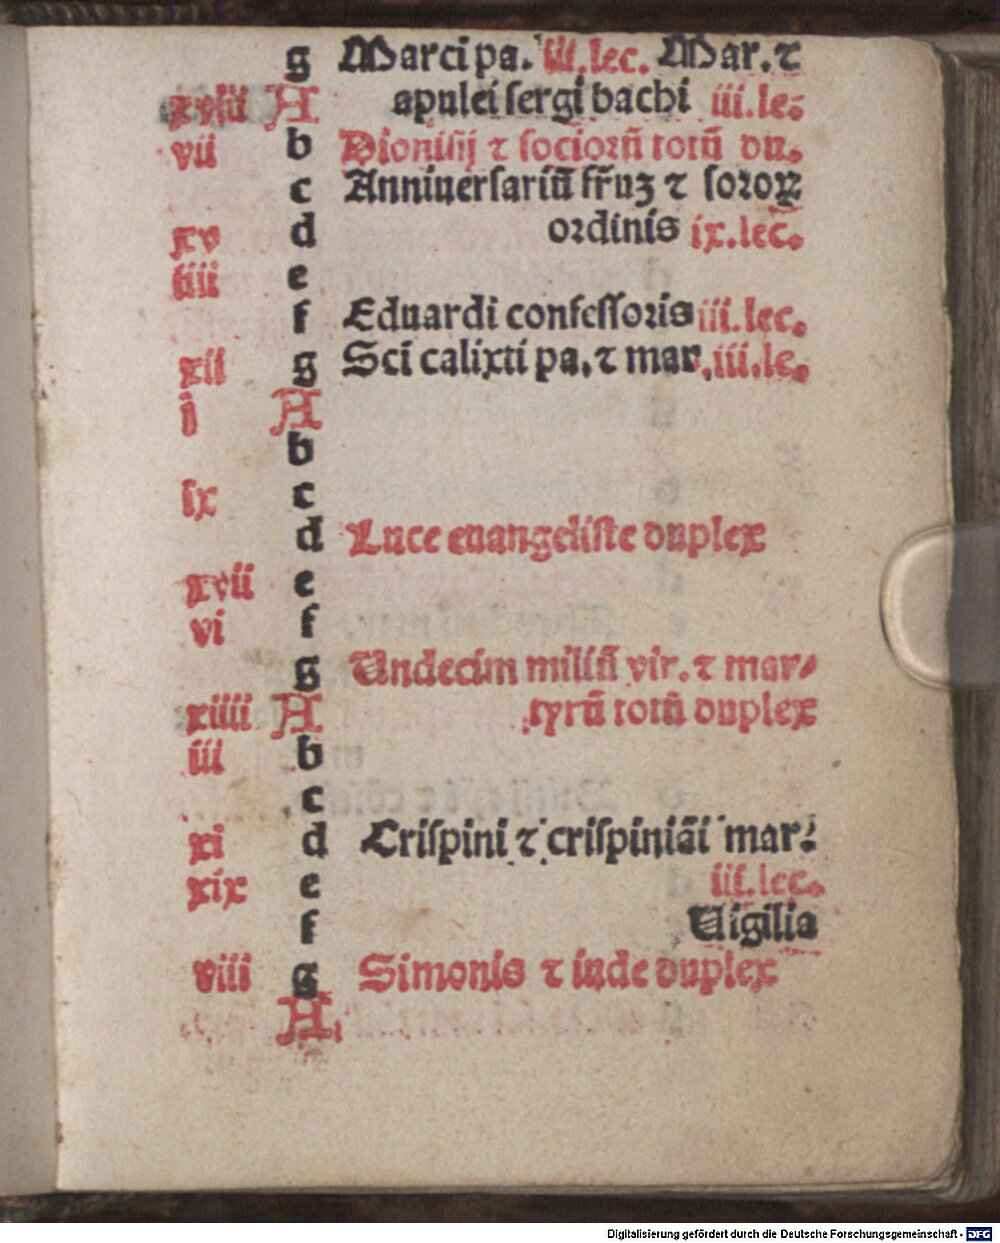 g Marci pa. iii. lec. Mar. ⁊
xviii A apulei sergi bachi iii. le.
vii b Dionisij ⁊ociorū totū du.
c Anniuersariū fr̄uꝫ ⁊ soroꝝ
xv d ordinis ix. lec.
iiii e
f Eduardi confessoris iii. lec.
xii g Sci calixti pa. ⁊ mar. iii. le.
i A
b
ix c
d Luce euangeliste duplex
xvii e
vi f
g Undecim miliū vir. ⁊ mar-
xiiii A tyrū totū duplex
iii b
c
xi d Crispini ⁊ crispiniāi mar.
xix e iii. lec.
f Uigilia
viii g Simonis ⁊ iude duplex
A
Digitalisierung gefördert durch die Deutsche Forschungsgemeinschaft - DFG